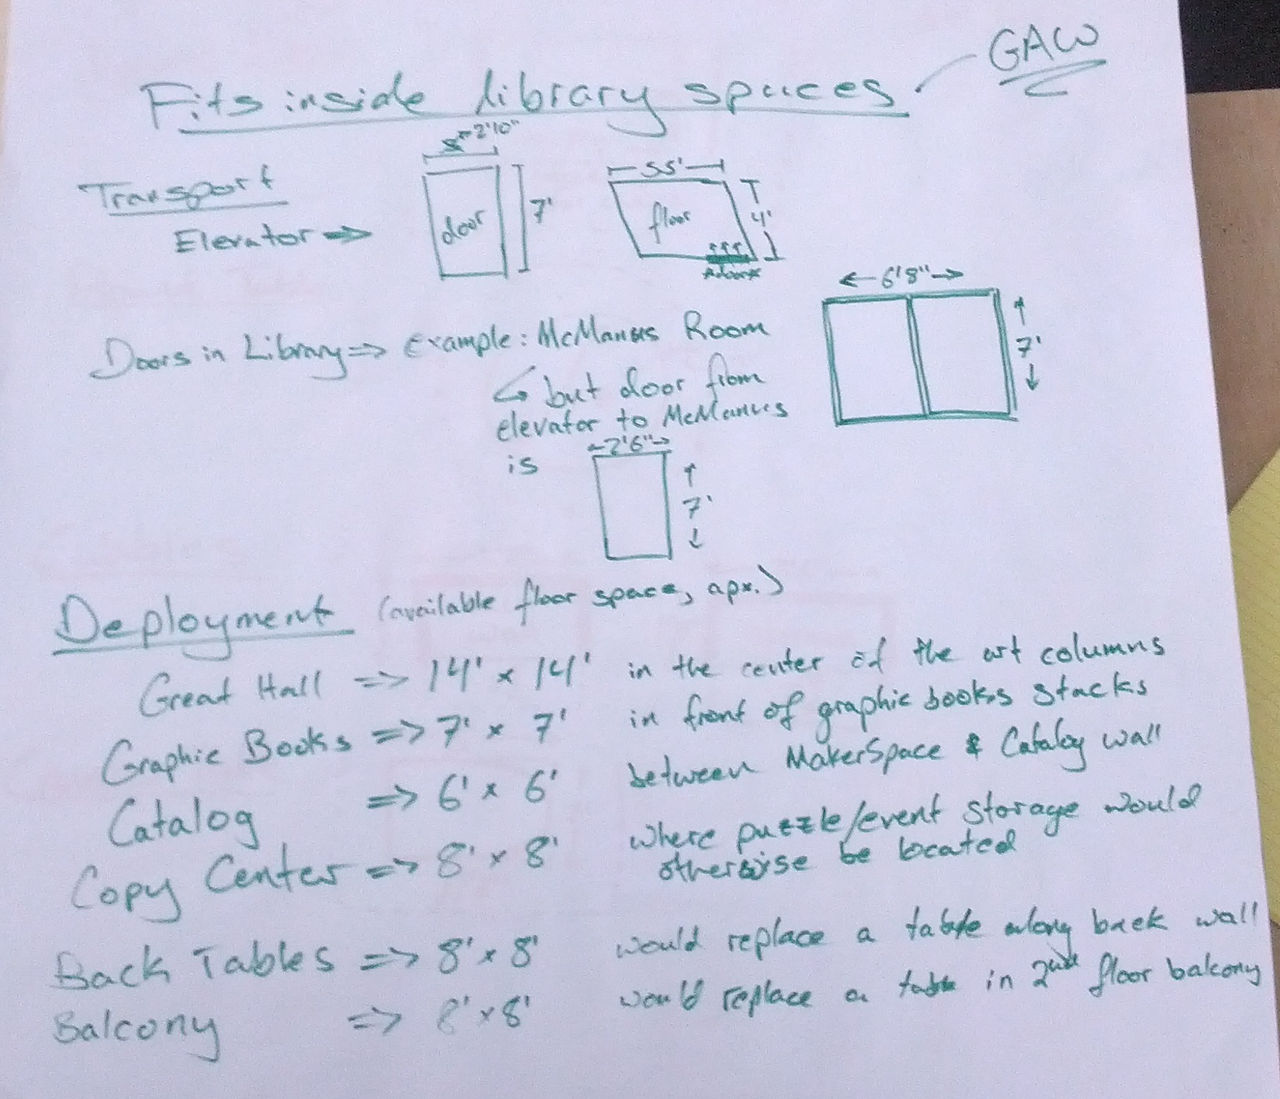 GAW
Fits inside library spaces
2'10"
Transport
Elevator ⇒
door
7'
5.5'
floor
4'
Doors in Library ⇒ Example: McManus Room
↳ but door from
elevator to McManus
is
← 6'8" →
7'
←2'6"→
7'
Deployment (available floor space, apx.)
Great Hall ⇒ 14' x 14' in the center of the art columns
Graphic Books ⇒ 7' x 7' in front of graphic books stacks
Catalog ⇒ 6' x 6' between MakerSpace & Catalog wall
Copy Center ⇒ 8' x 8' where puzzle/event storage would
otherwise be located
Back Tables ⇒ 8' x 8' would replace a table along back wall
Balcony ⇒ 8' x 8' would replace a table in 2nd floor balcony